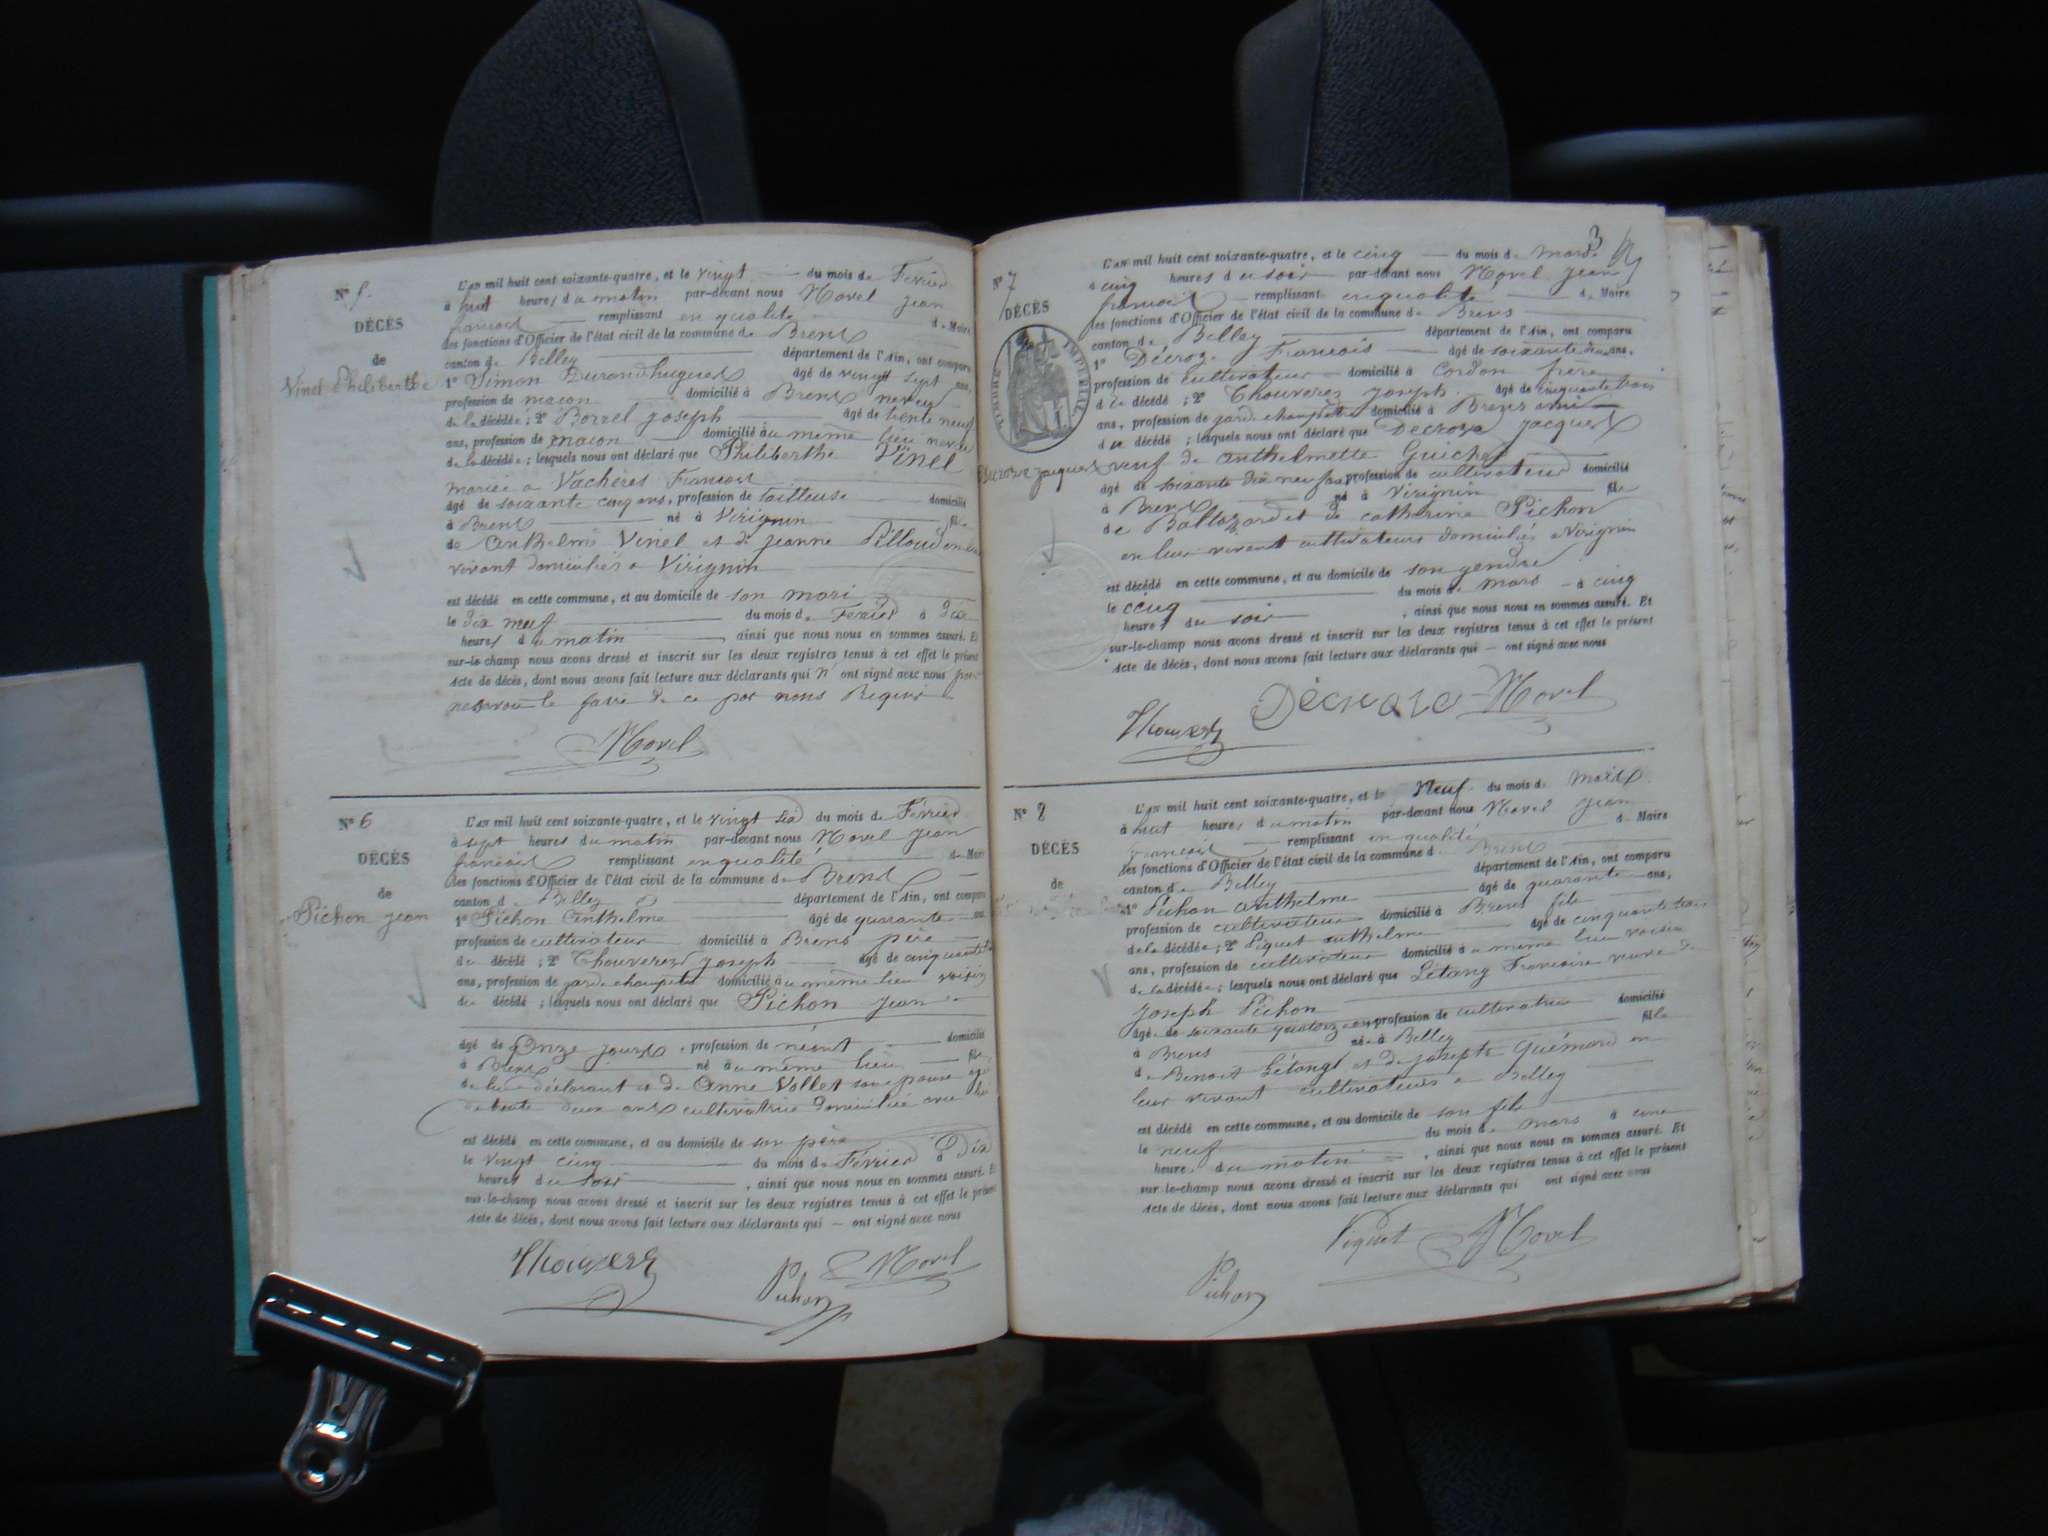 N° 5.
DÉCÈS
de
Vinel Philiberthe
L'AN mil huit cent soixante-quatre, et le vingt du mois de Fevrier
à huit heures du matin par-devant nous Morel jean
francois remplissant en qualité de Maire
les fonctions d'Officier de l'état civil de la commune de Brens
canton de Belley département de l'Ain, ont comparu
1° Simon Durand hugues âgé de vingt sept ans,
profession de macon domicilié à Brens neveu
de la décédée; 2° Borrel joseph âgé de trente neuf
ans, profession de macon domicilié au même lieu neveu
de la décédée; lesquels nous ont déclaré que Philiberthe Vinel
mariée a Vachères Francois
âgé de soixante cinq ans, profession de tailleuse domicilié
à Brens né à Virignin fille
de Anthelme Vinel et de jeanne Pilloud en leur
vivant domiciliés a Virignin
est décédé en cette commune, et au domicile de son mari
le dix neuf du mois de Fevrier à dix
heures du matin, ainsi que nous nous en sommes assuré. Et
sur-le-champ nous avons dressé et inscrit sur les deux registres tenus à cet effet le présent
Acte de décès, dont nous avons fait lecture aux déclarants qui n'ont signé avec nous pour
ne savoir le faire de ce par nous Requis
Morel
N° 6
DÉCÈS
de
Pichon jean
L'AN mil huit cent soixante-quatre, et le vingt six du mois de Février
à sept heures du matin par-devant nous Morel jean
francois remplissant en qualité de Maire
les fonctions d'Officier de l'état civil de la commune de Brens
canton de Belley département de l'Ain, ont comparu
1° Pichon Anthelme âgé de quarante ans
profession de cultivateur domicilié à Brens père
du décédé; 2° Thouverez joseph âgé de cinquante
ans, profession de garde champetre domicilié au même lieu voisin
du décédé; lesquels nous ont déclaré que Pichon jean
âgé de Onze jours, profession de néant domicilié
à Brens né au même lieu fils
de lui déclarant et de Anne Vollet son épouse agé
de trente deux ans cultivatrice domiciliée avec lui
est décédé en cette commune, et au domicile de son père
le vingt cinq du mois de Février à Dix
heures du soir, ainsi que nous nous en sommes assuré. Et
sur-le-champ nous avons dressé et inscrit sur les deux registres tenus à cet effet le présent
Acte de décès, dont nous avons fait lecture aux déclarants qui ont signé avec nous
Thouverez
Pichon
Morel
3
N° 7
DÉCÈS
TIMBRE IMPÉRIAL
Decroze jacques
L'AN mil huit cent soixante-quatre, et le cinq du mois de mars
à cinq heures du soir par-devant nous Morel jean
francois remplissant en qualité de Maire
les fonctions d'Officier de l'état civil de la commune de Brens
canton de Belley département de l'Ain, ont comparu
1° Décroze Francois âgé de soixante ans,
profession de cultivateur domicilié à Cordon frère
du décédé; 2° Thouverez joseph âgé de cinquante trois
ans, profession de garde champêtre domicilié à Brens ami
du décédé; lesquels nous ont déclaré que Decroze jacques
veuf de anthelmette Guichet
âgé de soixante dix neuf ans profession de cultivateur domicilié
à Brens né à Virignin fils
de Baltazard et de catherine Pichon
en leur vivant cultivateurs domiciliés a Virignin
est décédé en cette commune, et au domicile de son gendre
le cinq du mois de mars à cinq
heures du soir, ainsi que nous nous en sommes assuré. Et
sur-le-champ nous avons dressé et inscrit sur les deux registres tenus à cet effet le présent
Acte de décès, dont nous avons fait lecture aux déclarants qui ont signé avec nous
Thouverez
Décroze
Morel
N° 8
DÉCÈS
de
L'AN mil huit cent soixante-quatre, et le Neuf du mois de mars
à huit heures du matin par-devant nous Morel jean
francois remplissant en qualité de Maire
les fonctions d'Officier de l'état civil de la commune de Brens
canton de Belley département de l'Ain, ont comparu
1° Pichon anthelme âgé de quarante ans,
profession de cultivateur domicilié à Brens fils
de la décédée; 2° Piquet anthelme âgé de cinquante
ans, profession de cultivateur domicilié au même lieu voisin
de la décédée; lesquels nous ont déclaré que Létang Francoise veuve de
joseph Pichon
âgé de soixante quatorze ans profession de cultivatrice domicilié
à Brens née à Belley fille
de Benoit Létang et de josephte Guémard en
leur vivant cultivateurs a Belley
est décédé en cette commune, et au domicile de son fils
le neuf du mois de mars à une
heure, du matin, ainsi que nous nous en sommes assuré. Et
sur-le-champ nous avons dressé et inscrit sur les deux registres tenus à cet effet le présent
Acte de décès, dont nous avons fait lecture aux déclarants qui ont signé avec nous
Piquet
Morel
Pichon